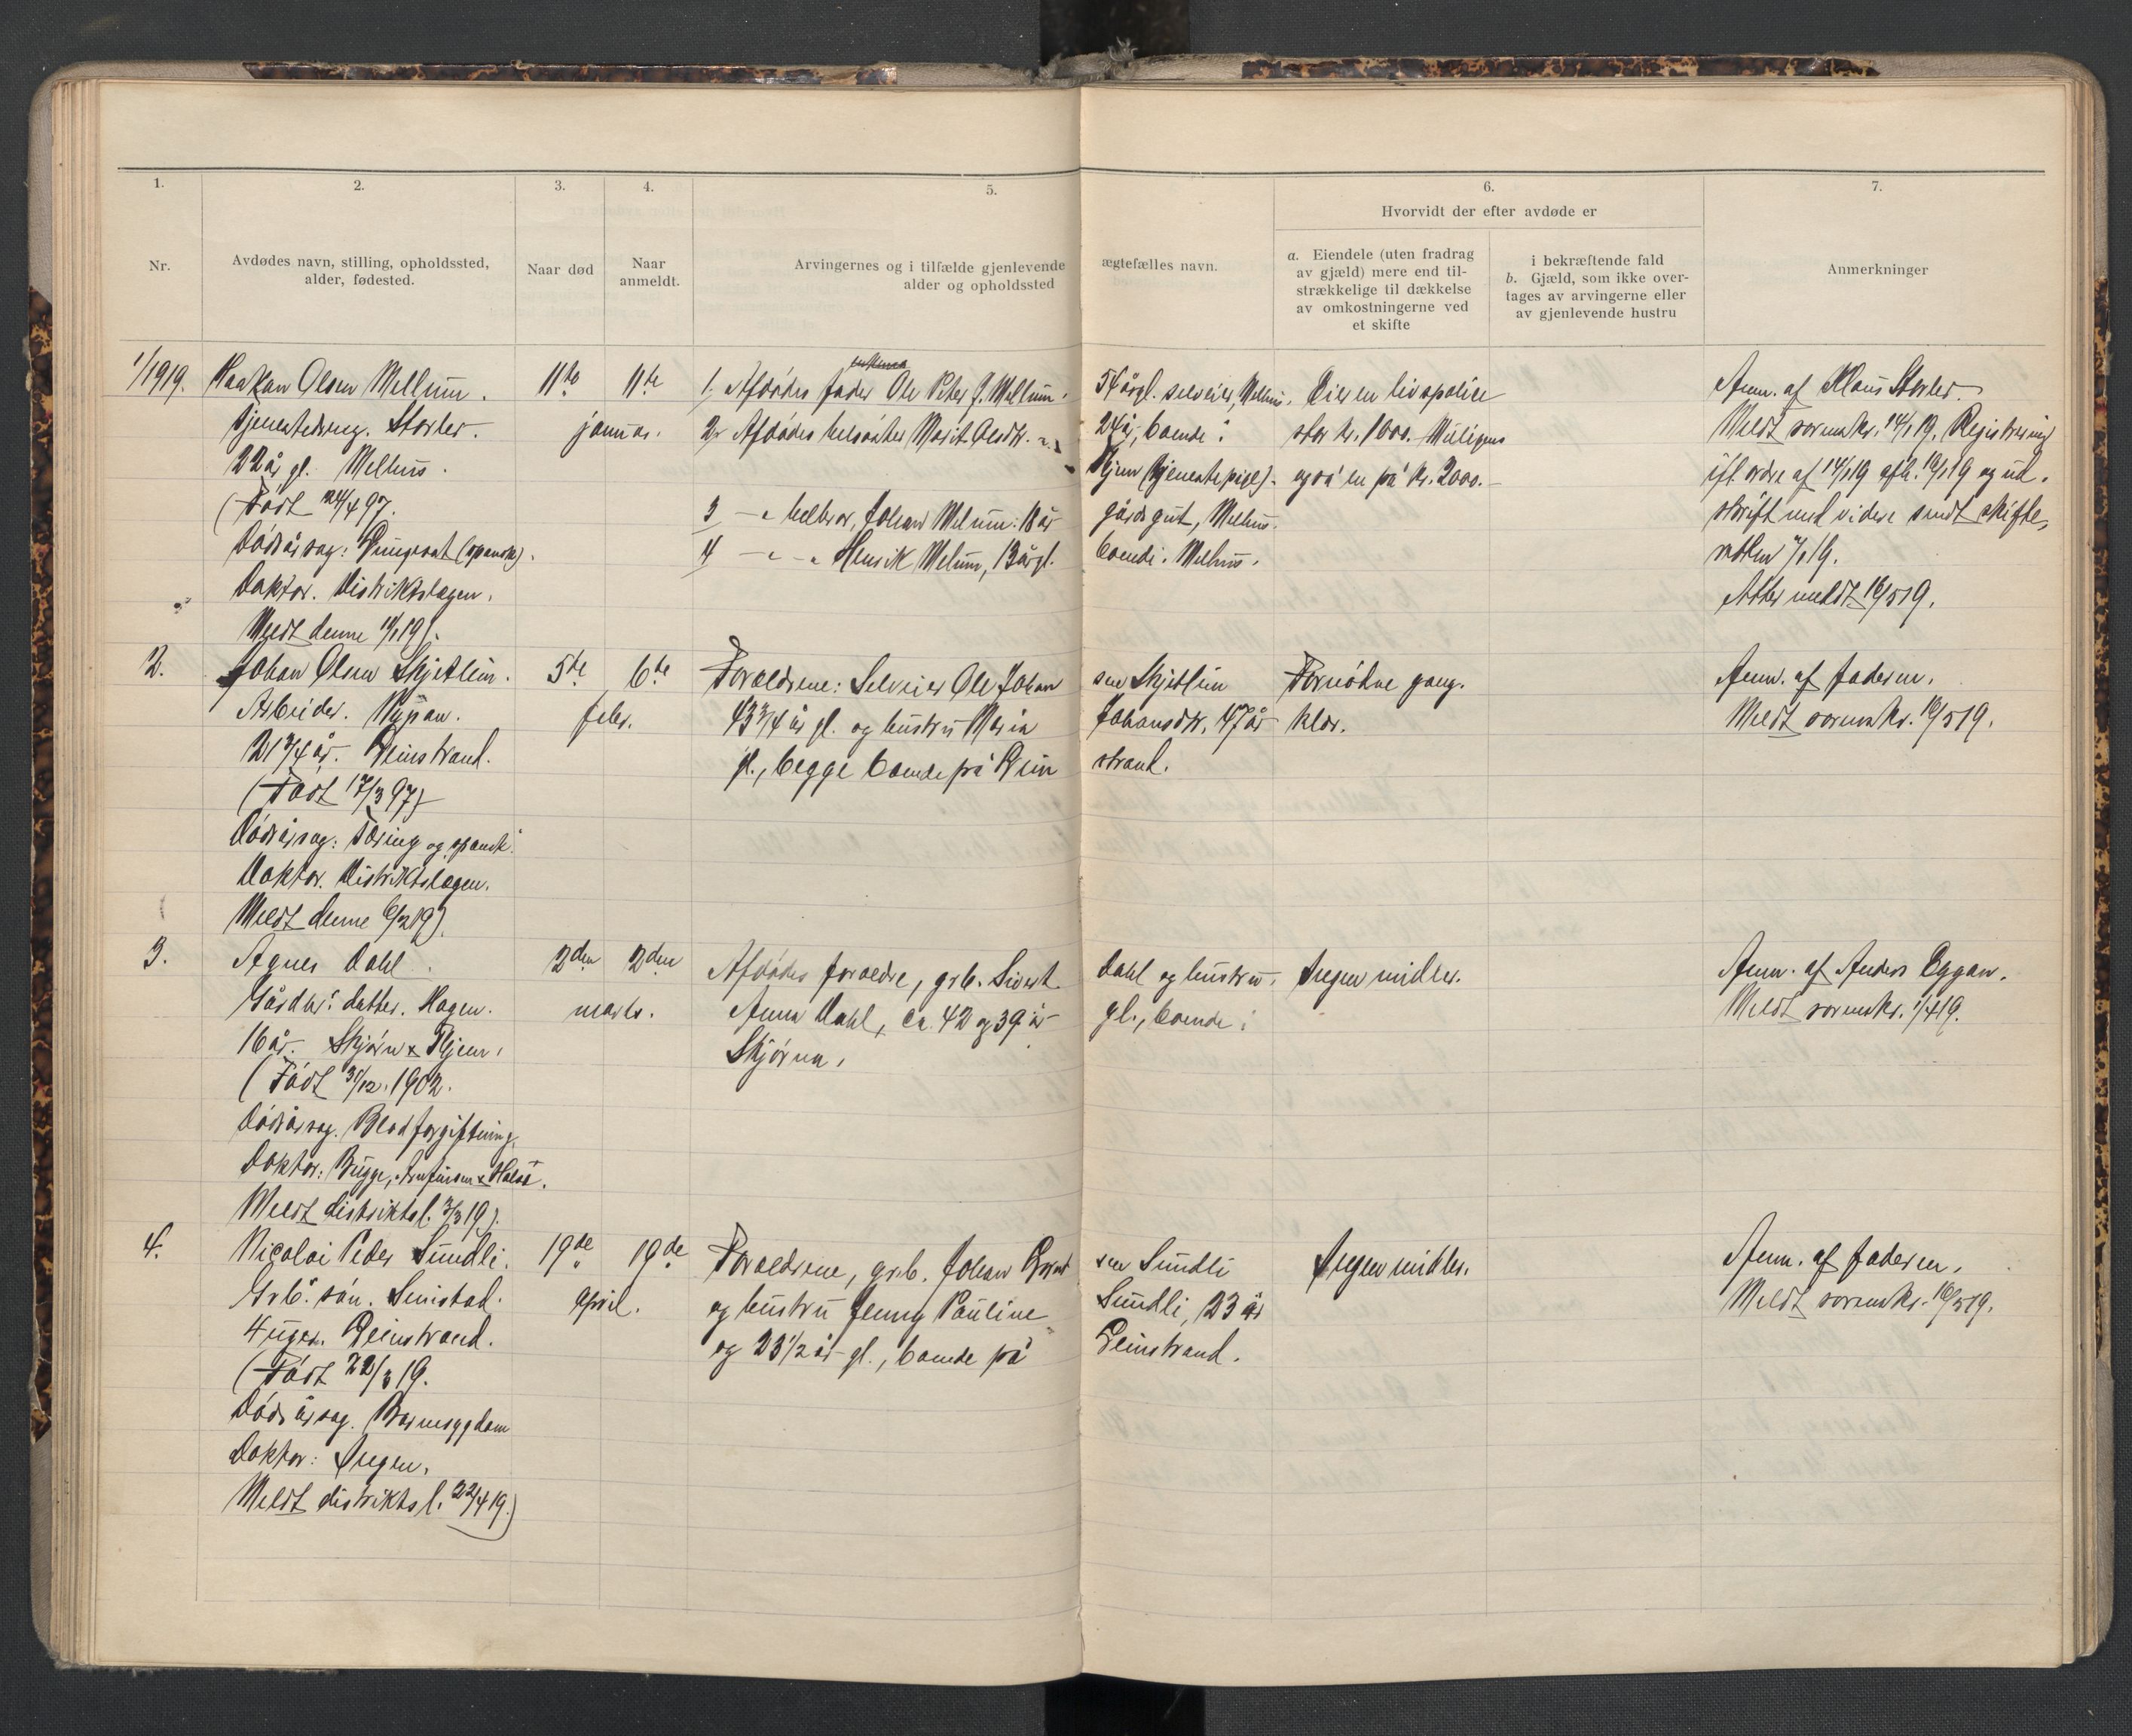 1.
2.
3.
4.
5.
6.
7.
Nr.
Avdødes navn, stilling, opholdssted,
alder, fødested.
Naar død
Naar
anmeldt.
Arvingernes og i tilfælde gjenlevende ægtefælles navn.
alder og opholdssted
Hvorvidt der efter avdøde er
a. Eiendele (uten fradrag
av gjæld) mere end til-
strækkelige til dækkelse
av omkostningerne ved
et skifte
i bekræftende fald
b. Gjæld, som ikke over-
tages av arvingerne eller
av gjenlevende hustru
Anmerkninger
1/1919.
Haakon Olsen Mellum.
Tjenestedreng. Storler.
22 år gl. Melhus.
(Født 24/4 97.
Dødsårsag: (spansk).
Doktor. Distriktslægen.
Meldt denne 11/1 19).
11te
januar.
11te
1, Afdødes fader Ole Peter J. Mellum. 54 årgl. selveier, Melhus.
2, Afdødes helsøster Marit Olsdtr. 24 år, boende i
Fljem (tjenestepige).
3 — " helbror, Johan Melum: 18 år gårdsgut, Melhus.
4 — " — " Henrik Melum, 13 årgl. boende i Melhus.
Eier en livspolice
stor kr. 1000. Muligens
også en på kr. 2000.—
Anm. af Klaus Storler.
Meldt sorenskr. 14/1 19. Registrering
ifl. ordre af 14/1 19 afh. 16/1 19 og ud-
skrift med videre sendt skifte-
retten /1 19.
Atter meldt 16/5 19.
2.
Johan Olsen Skjetlein.
Arbeider. Nypan.
21 3/4 år. Leinstrand.
(Født 17/3 97)
Dødsårsag: Tæring og spansk.
Doktor. Distriktslægen.
Meldt denne 6/2 19).
5te
febr.
6te
Forældrene: Selveier Ole Johan sen Skjetlein
43 3/4 år gl. og hustru Maria Johansdtr. 47 år
gl., begge boende på Lein strand.
Fornødne gang-
klær.
Anm. af faderen.
Meldt sorenskr. 16/5 19.
3.
Agnes Dahl.
Gårdbr.s datter. Hagen.
16 år. Skjørn x Fljem.
(Født 31/12. 1902.
Dødsårsag. Blodforgiftning.
Doktor: Bugge,
Meldt distriktsl. 3/3 19).
2den
marts.
2den
Afdødes forældre, grb. Sivert Dahl og hustru
Anna Dahl, ca. 42 og 39 år gl., boende i
Skjørna.
Ingen midler.
Anm. af Anders Eggan.
Meldt sorenskr. 1/4 19.
4.
Nicolai Peder Sundli.
Grb.s søn.
4 uger. Leinstrand.
(Født 22/3 19.
Dødsårsag. Barnesygdom
Doktor: Ingen.
Meldt distriktsl. 22/4 19.)
19de
april.
19de
Forældrene, grb. Johan sen Sundli
og hustru Jenny Pauline Sundli, 23 år
og 23 1/2 år gl., boende på Leinstrand.
Ingen midler.
Anm. af faderen.
Meldt sorenskr. 16/5 19.